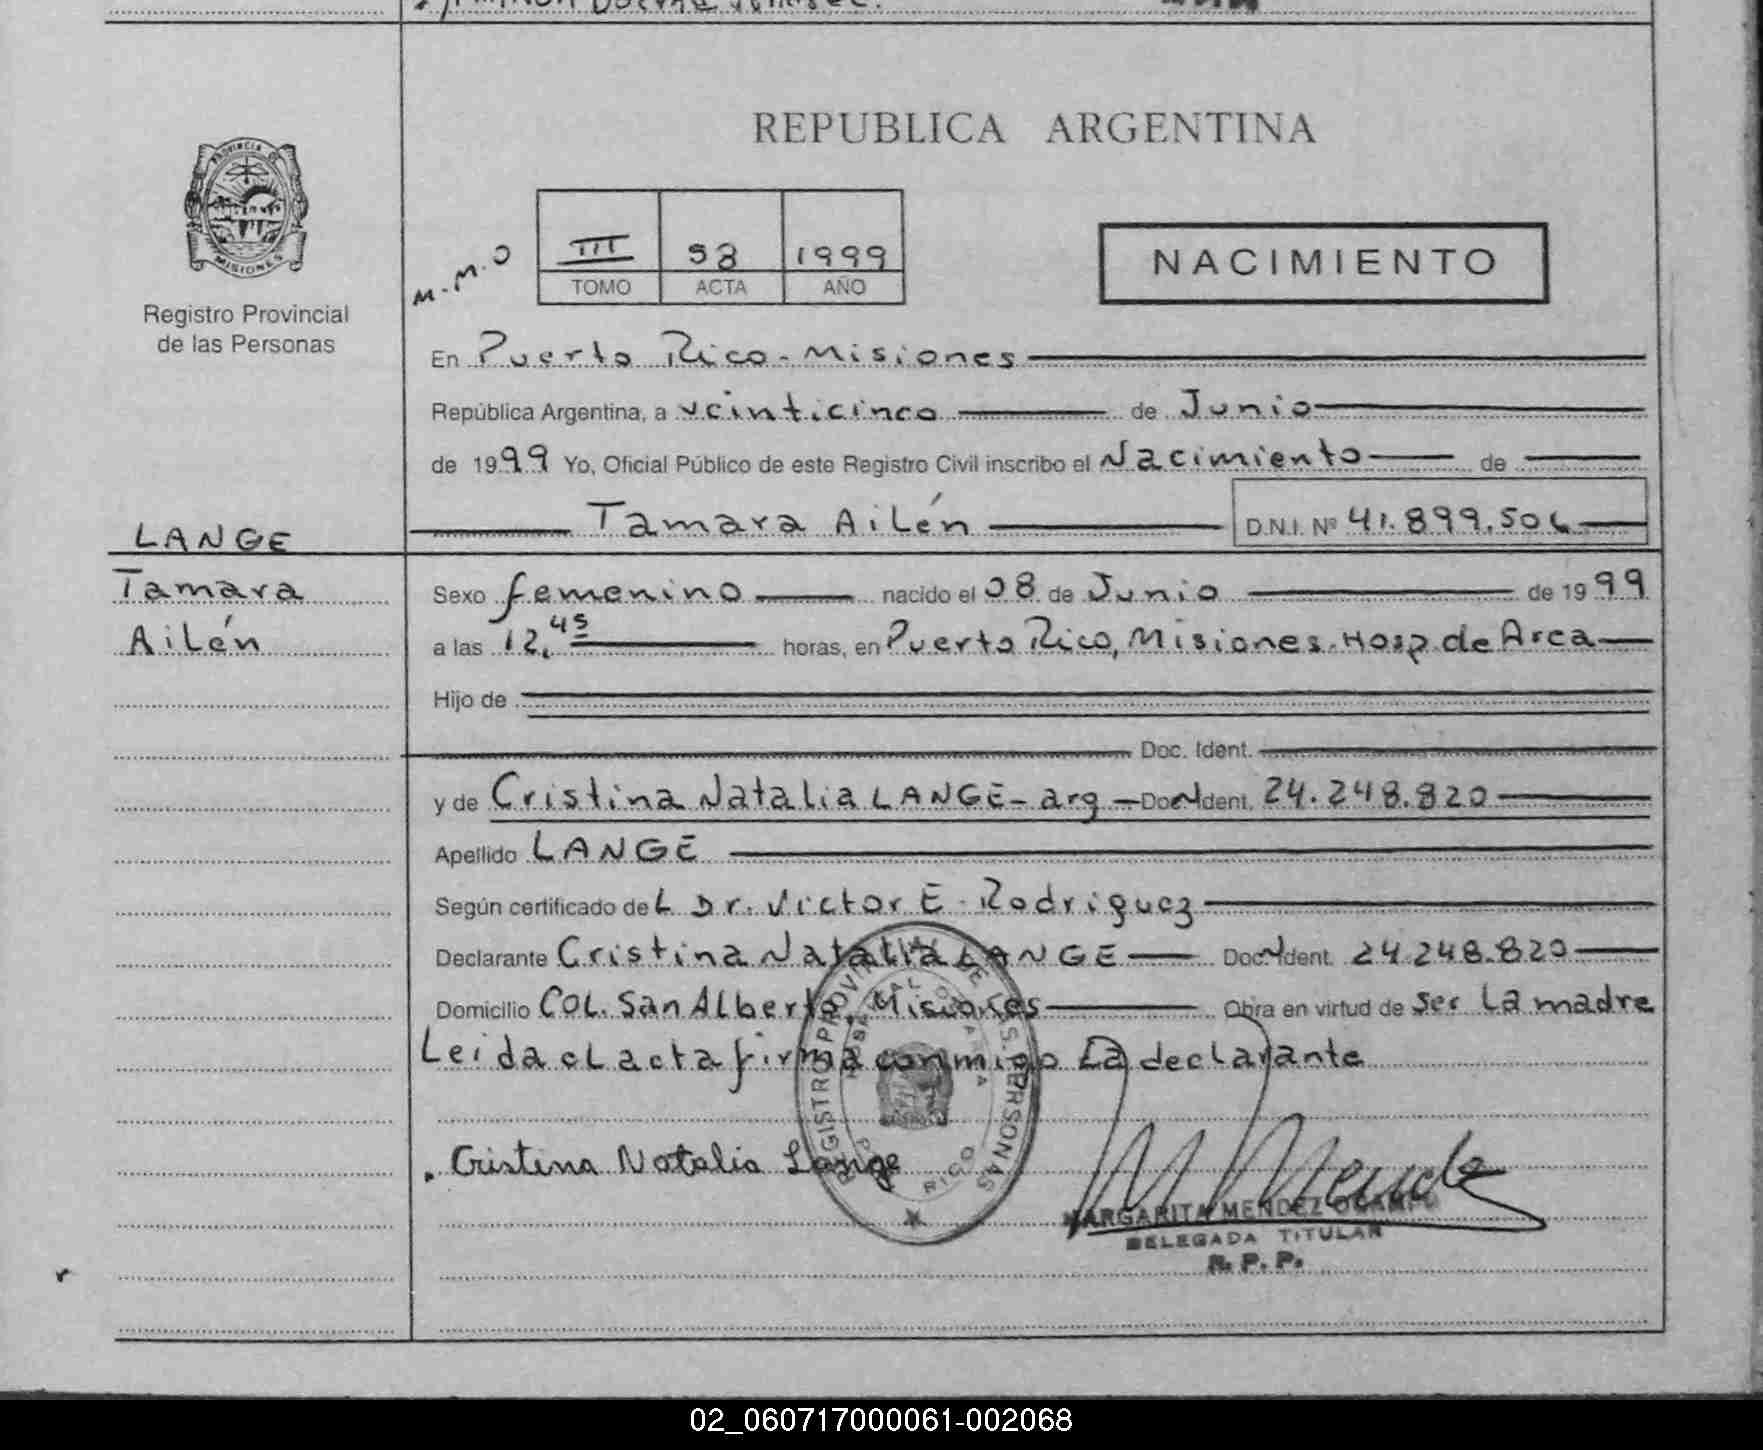 REPUBLICA ARGENTINA
PROVINCIA DE
MISIONES
Registro Provincial
de las Personas
M.M.O
III 98 1999
TOMO ACTA AÑO
NACIMIENTO
En Puerto Rico - Misiones
República Argentina, a veinticinco de Junio
de 1999 Yo, Oficial Público de este Registro Civil inscribo el Nacimiento de
Tamara Ailén D.N.I. Nº 41.899.506
LANGE
Tamara
Ailén
Sexo femenino nacido el 08 de Junio de 1999
a las 12,45 horas, en Puerto Rico, Misiones. Hosp. de Area
Hijo de
Doc. Ident.
y de Cristina Natalia LANGE - arg - Doc. Ident. 24.248.820
Apellido LANGE
Según certificado del Dr. Victor E. Rodriguez
Declarante Cristina Natalia LANGE Doc. Ident. 24.248.820
Domicilio COL. San Alberto, Misiones Obra en virtud de ser la madre
Leida el acta firma conmigo La declarante
Cristina Natalia Lange
REGISTRO PROVINCIAL DE LAS PERSONAS
MARGARITA MENDEZ OCAMPO
DELEGADA TITULAR
R. P. P.
02_060717000061-002068